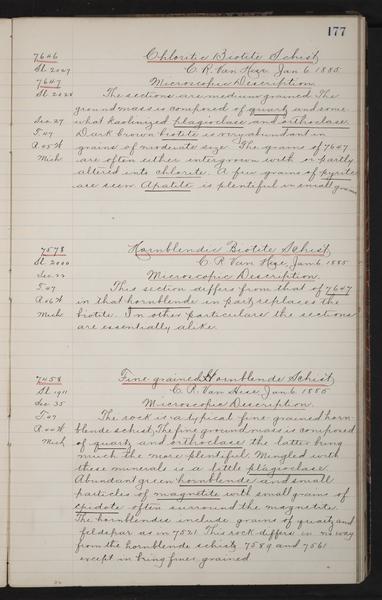 177
7646 Chloritic Biotite Schist
Sl. 2047 C. R. Van Hise, Jan 6, 1885
7647 Microscopic Description
Sl. 2028 The sections are medium grained. The
ground mass is composed of quartz and some-
Sec. 27 what kaolinized plagioclase and orthoclase.
T 47 Dark brown biotite is very abundant in
R 45 W grains of moderate size. The grains of 7647
Mich are often either intergrown with or partly
altered into chlorite. A few grains of pyrite
are seen. Apatite is plentiful in small grains
7578 Hornblendic Biotite Schist
Sl. 2000 C. R. Van Hise, Jan 6, 1885
Sec. 22 Microscopic Description.
T 47 This section differs from that of 7647
R 46 W in that hornblende in part replaces the
Mich biotite. In other particulars the sections
are essentially alike.
7458 Fine grained Hornblende Schist
Sl. 1911 C. R. Van Hise, Jan 6, 1885
Sec. 35 Microscopic Description.
T 47 The rock is a typical fine-grained horn-
R 44 W blende schist. The fine ground mass is composed
Mich of quartz and orthoclase the latter being
much the more plentiful. Mingled with
these minerals is a little plagioclase.
Abundant green hornblende and small
particles of magnetite with small grains of
epidote often surround the magnetite.
The hornblendes include grains of quartz and
feldspar as in 7521. This rock differs in no way
from the hornblende schists 7589 and 7561
except in being finer grained